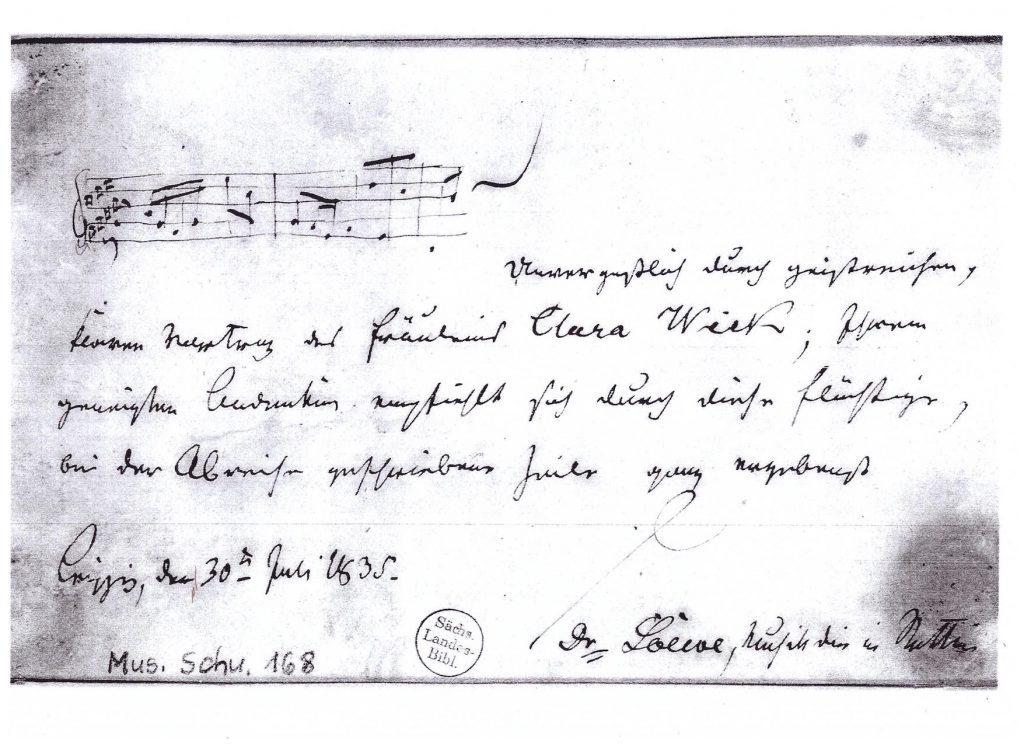 Unvergeßlich durch geistreichen,
klaren Vortrag des Fräuleins Clara Wieck; Ihrem
geneigten Andenken empfiehlt sich durch diese flüchtige,
bei der Abreise geschriebene Zeile ganz ergebenst
Leipzig, den 30n Juli 1835.
Dr Loewe, Musikdir in Stettin
Sächs.
Landes-
Bibl.
Mus. Schu. 168